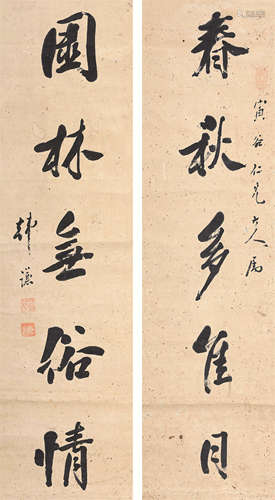 春秋多佳日
寅谷仁兄大人屬
園林無俗情